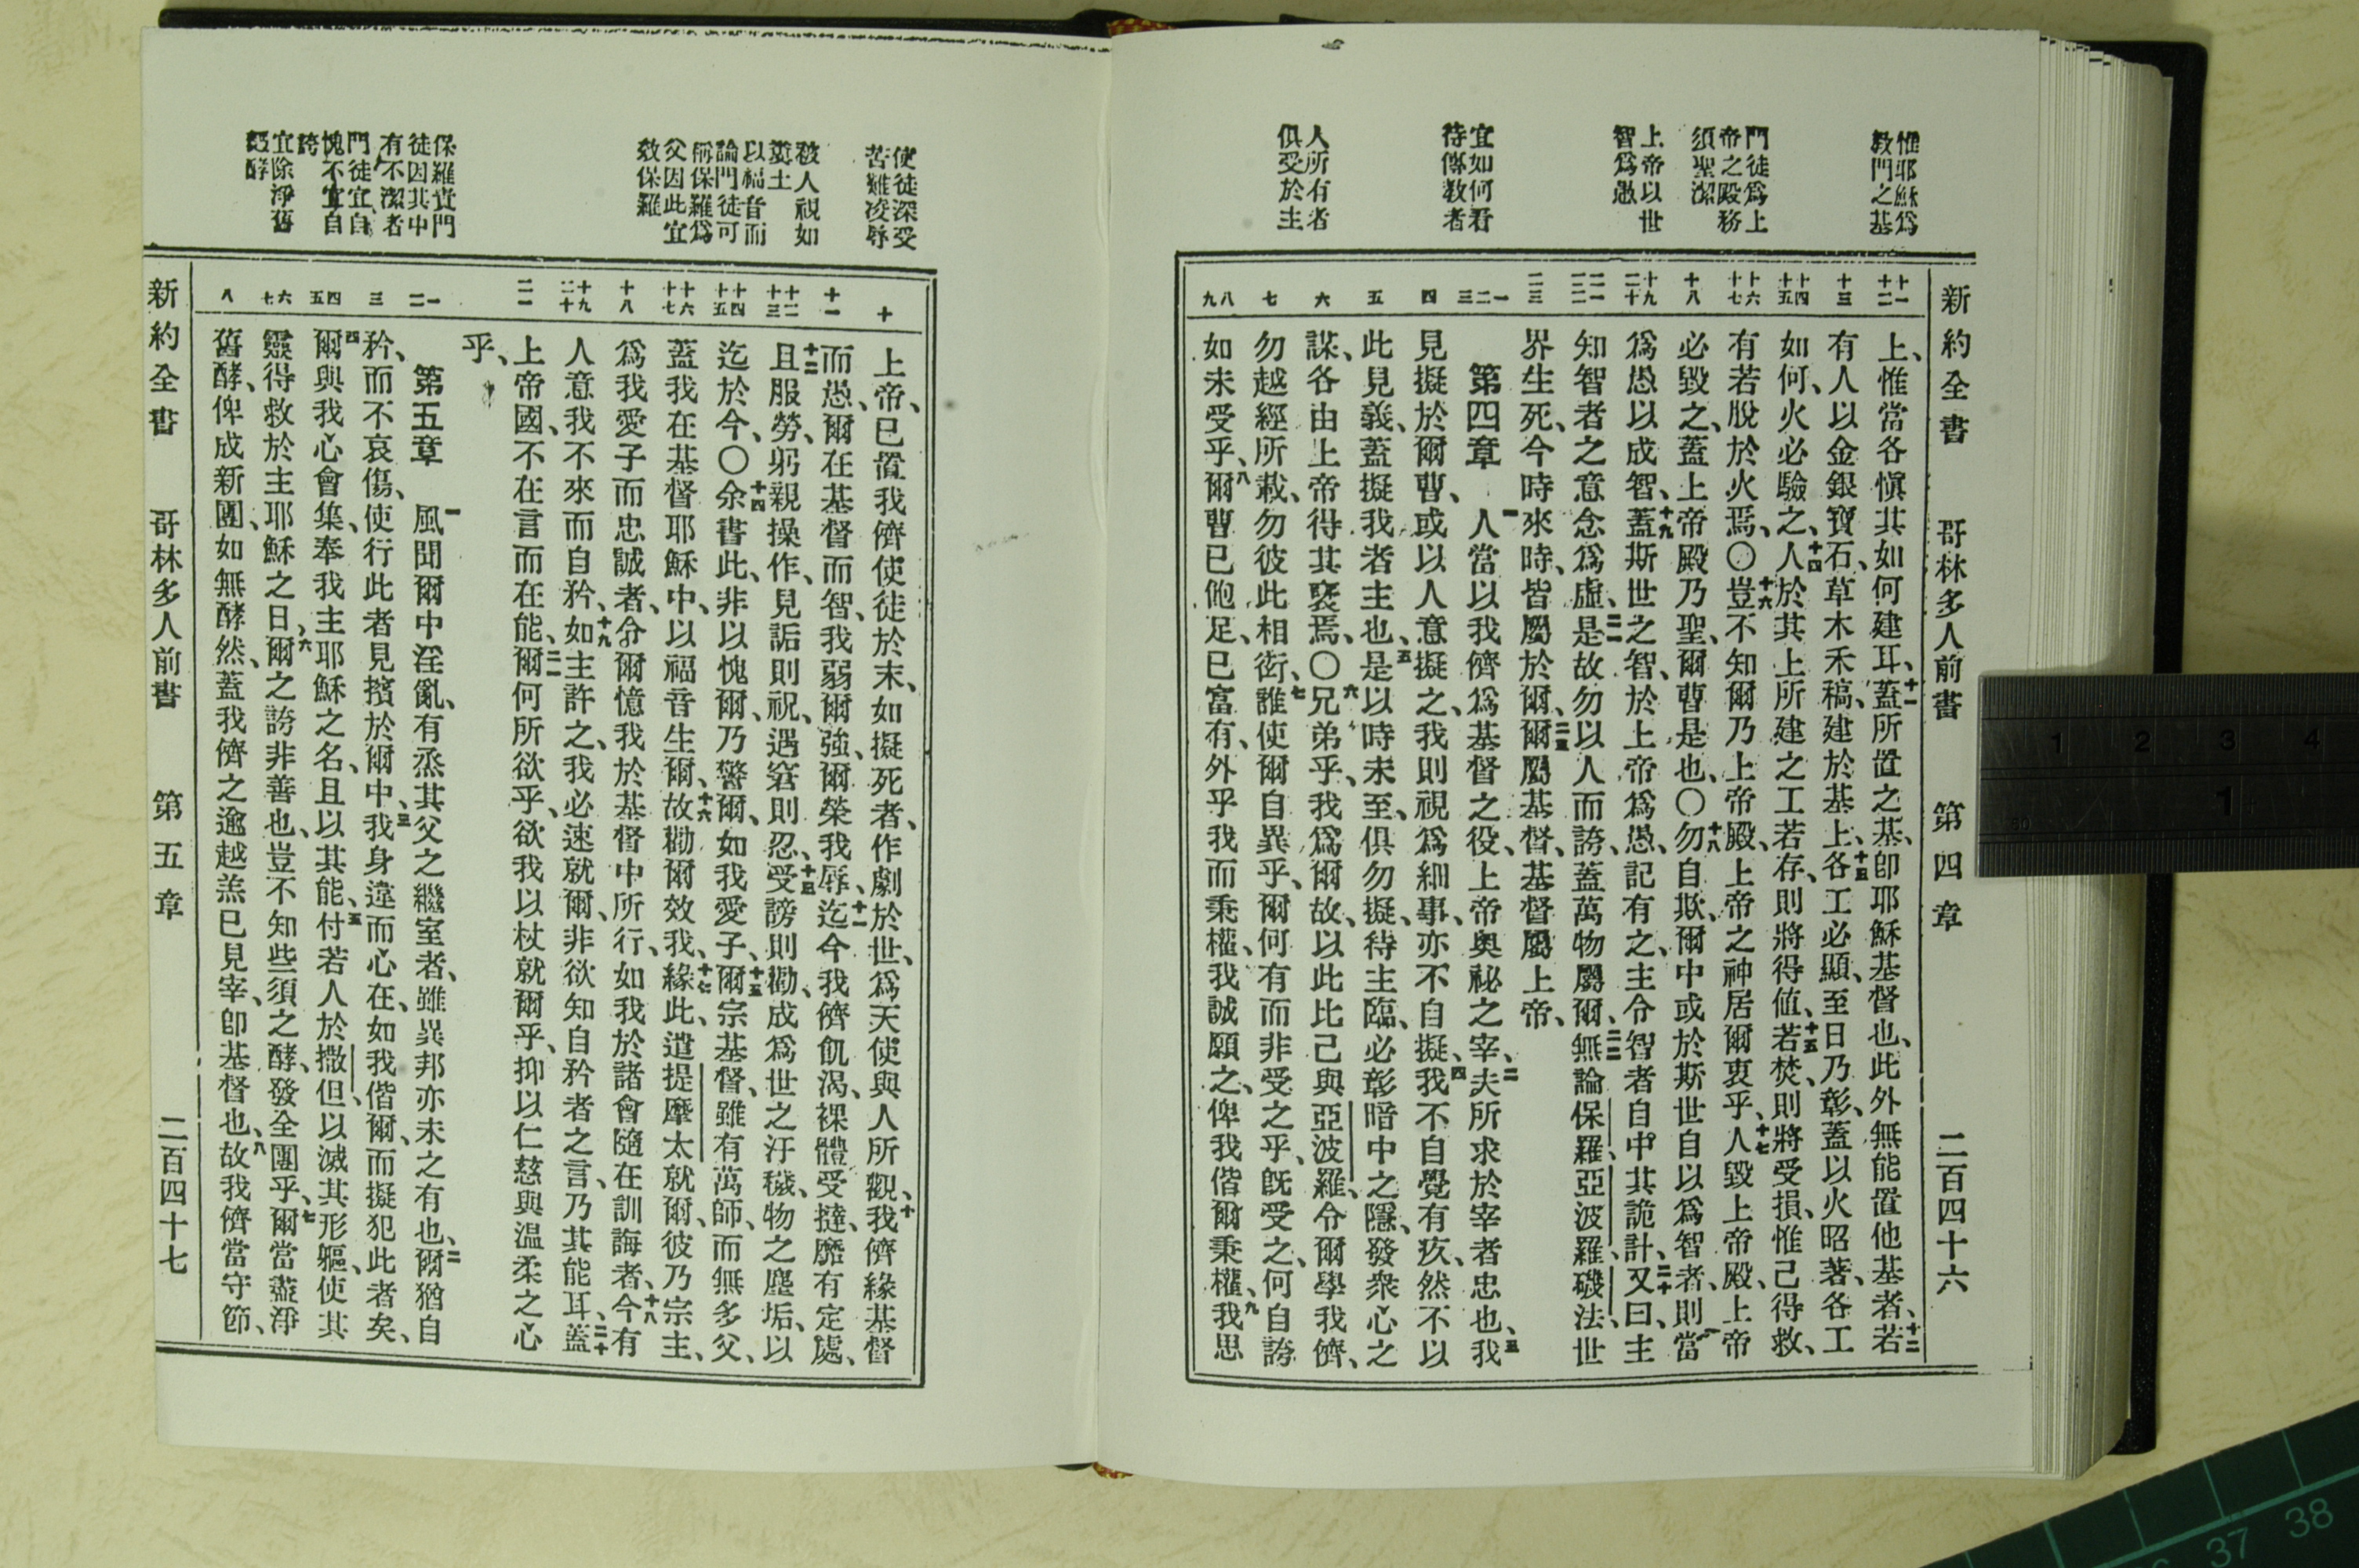 惟耶穌爲
教門之基
門徒爲上
帝之殿務
須聖潔
上帝以世
智爲愚
宜如何看
待傳教者
人所有者
俱受於主
新約全書 哥林多人前書 第四章 二百四十六
十一 十二
十三
十四 十五
十六 十七
十八
十九 二十
二一 二二
二三
一 二 三
四
五
六
七
八 九
上、惟當各愼其如何建耳、十一蓋所置之基、卽耶穌基督也、此外無能置他基者、十二若
有人以金銀寶石、草木禾稿、建於基上、十三各工必顯、至日乃彰、蓋以火昭著、各工
如何、火必驗之、十四人於其上所建之工若存、則將得値、十五若焚、則將受損、惟己得救、
有若脫於火焉、〇十六豈不知爾乃上帝殿、上帝之神居爾衷乎、十七人毀上帝殿、上帝
必毀之、蓋上帝殿乃聖、爾曹是也、〇十八勿自欺、爾中或於斯世自以爲智者、則當
爲愚以成智、十九蓋斯世之智、於上帝爲愚、記有之、主令智者自中其詭計、二十又曰、主
知智者之意念爲虛、二一是故勿以人而誇、蓋萬物屬爾、二二無論保羅、亞波羅、磯法、世
界生死、今時來時、皆屬於爾、二三爾屬基督、基督屬上帝、
第四章 一人當以我儕爲基督之役、上帝奧祕之宰、二夫所求於宰者忠也、三我
見擬於爾曹、或以人意擬之、我則視爲細事、亦不自擬、四我不自覺有疚、然不以
此見義、蓋擬我者主也、五是以時未至、俱勿擬、待主臨、必彰暗中之隱、發衆心之
謀、各由上帝得其襃焉、〇六兄弟乎、我爲爾故、以此比己與亞波羅、令爾學我儕、
勿越經所載、勿彼此相衒、七誰使爾自異乎、爾何有而非受之乎、旣受之、何自誇
如未受乎、八爾曹已飽足、已富有、外乎我而秉權、我誠願之、俾我偕爾秉權、九我思
使徒深受
苦難凌辱
被人視如
糞土
以福音而
論門徒可
稱保羅爲
父因此宜
效保羅
保羅責門
徒因其中
有不潔者
門徒宜自
愧不宜自
誇
宜除淨舊
惡酵
十
十一
十二 十三
十四 十五
十六 十七
十八
十九 二十
二一
一 二
三
四 五
六 七
八
上帝、已置我儕使徒於末、如擬死者、作劇於世、爲天使與人所觀、十我儕緣基督
而愚、爾在基督而智、我弱爾強、爾榮我辱、十一迄今我儕飢渴、裸體受撻、靡有定處、
十二且服勞、躬親操作、見詬則祝、遇窘則忍、十三受謗則勸、成爲世之汙穢、物之塵垢、以
迄於今、〇十四余書此、非以愧爾、乃警爾、如我愛子、十五爾宗基督、雖有萬師、而無多父、
蓋我在基督耶穌中、以福音生爾、十六故勸爾效我、十七緣此、遣提摩太就爾、彼乃宗主、
爲我愛子而忠誠者、令爾憶我於基督中所行、如我於諸會隨在訓誨者、十八今有
人意我不來而自矜、十九如主許之、我必速就爾、非欲知自矜者之言、乃其能耳、二十蓋
上帝國、不在言而在能、二一爾何所欲乎、欲我以杖就爾乎、抑以仁慈與溫柔之心
乎、
第五章 一風聞爾中淫亂、有烝其父之繼室者、雖異邦亦未之有也、二爾猶自
矜、而不哀傷、使行此者見擯於爾中、三我身違而心在、如我偕爾、而擬犯此者矣、
四爾與我心會集、奉我主耶穌之名、且以其能、五付若人於撒但、以滅其形軀、使其
靈得救於主耶穌之日、六爾之誇非善也、豈不知些須之酵、發全團乎、七爾當盡淨
舊酵、俾成新團、如無酵然、蓋我儕之逾越羔已見宰、卽基督也、八故我儕當守節、
新約全書 哥林多人前書 第五章 二百四十七
1 2 3 4
1
37 38